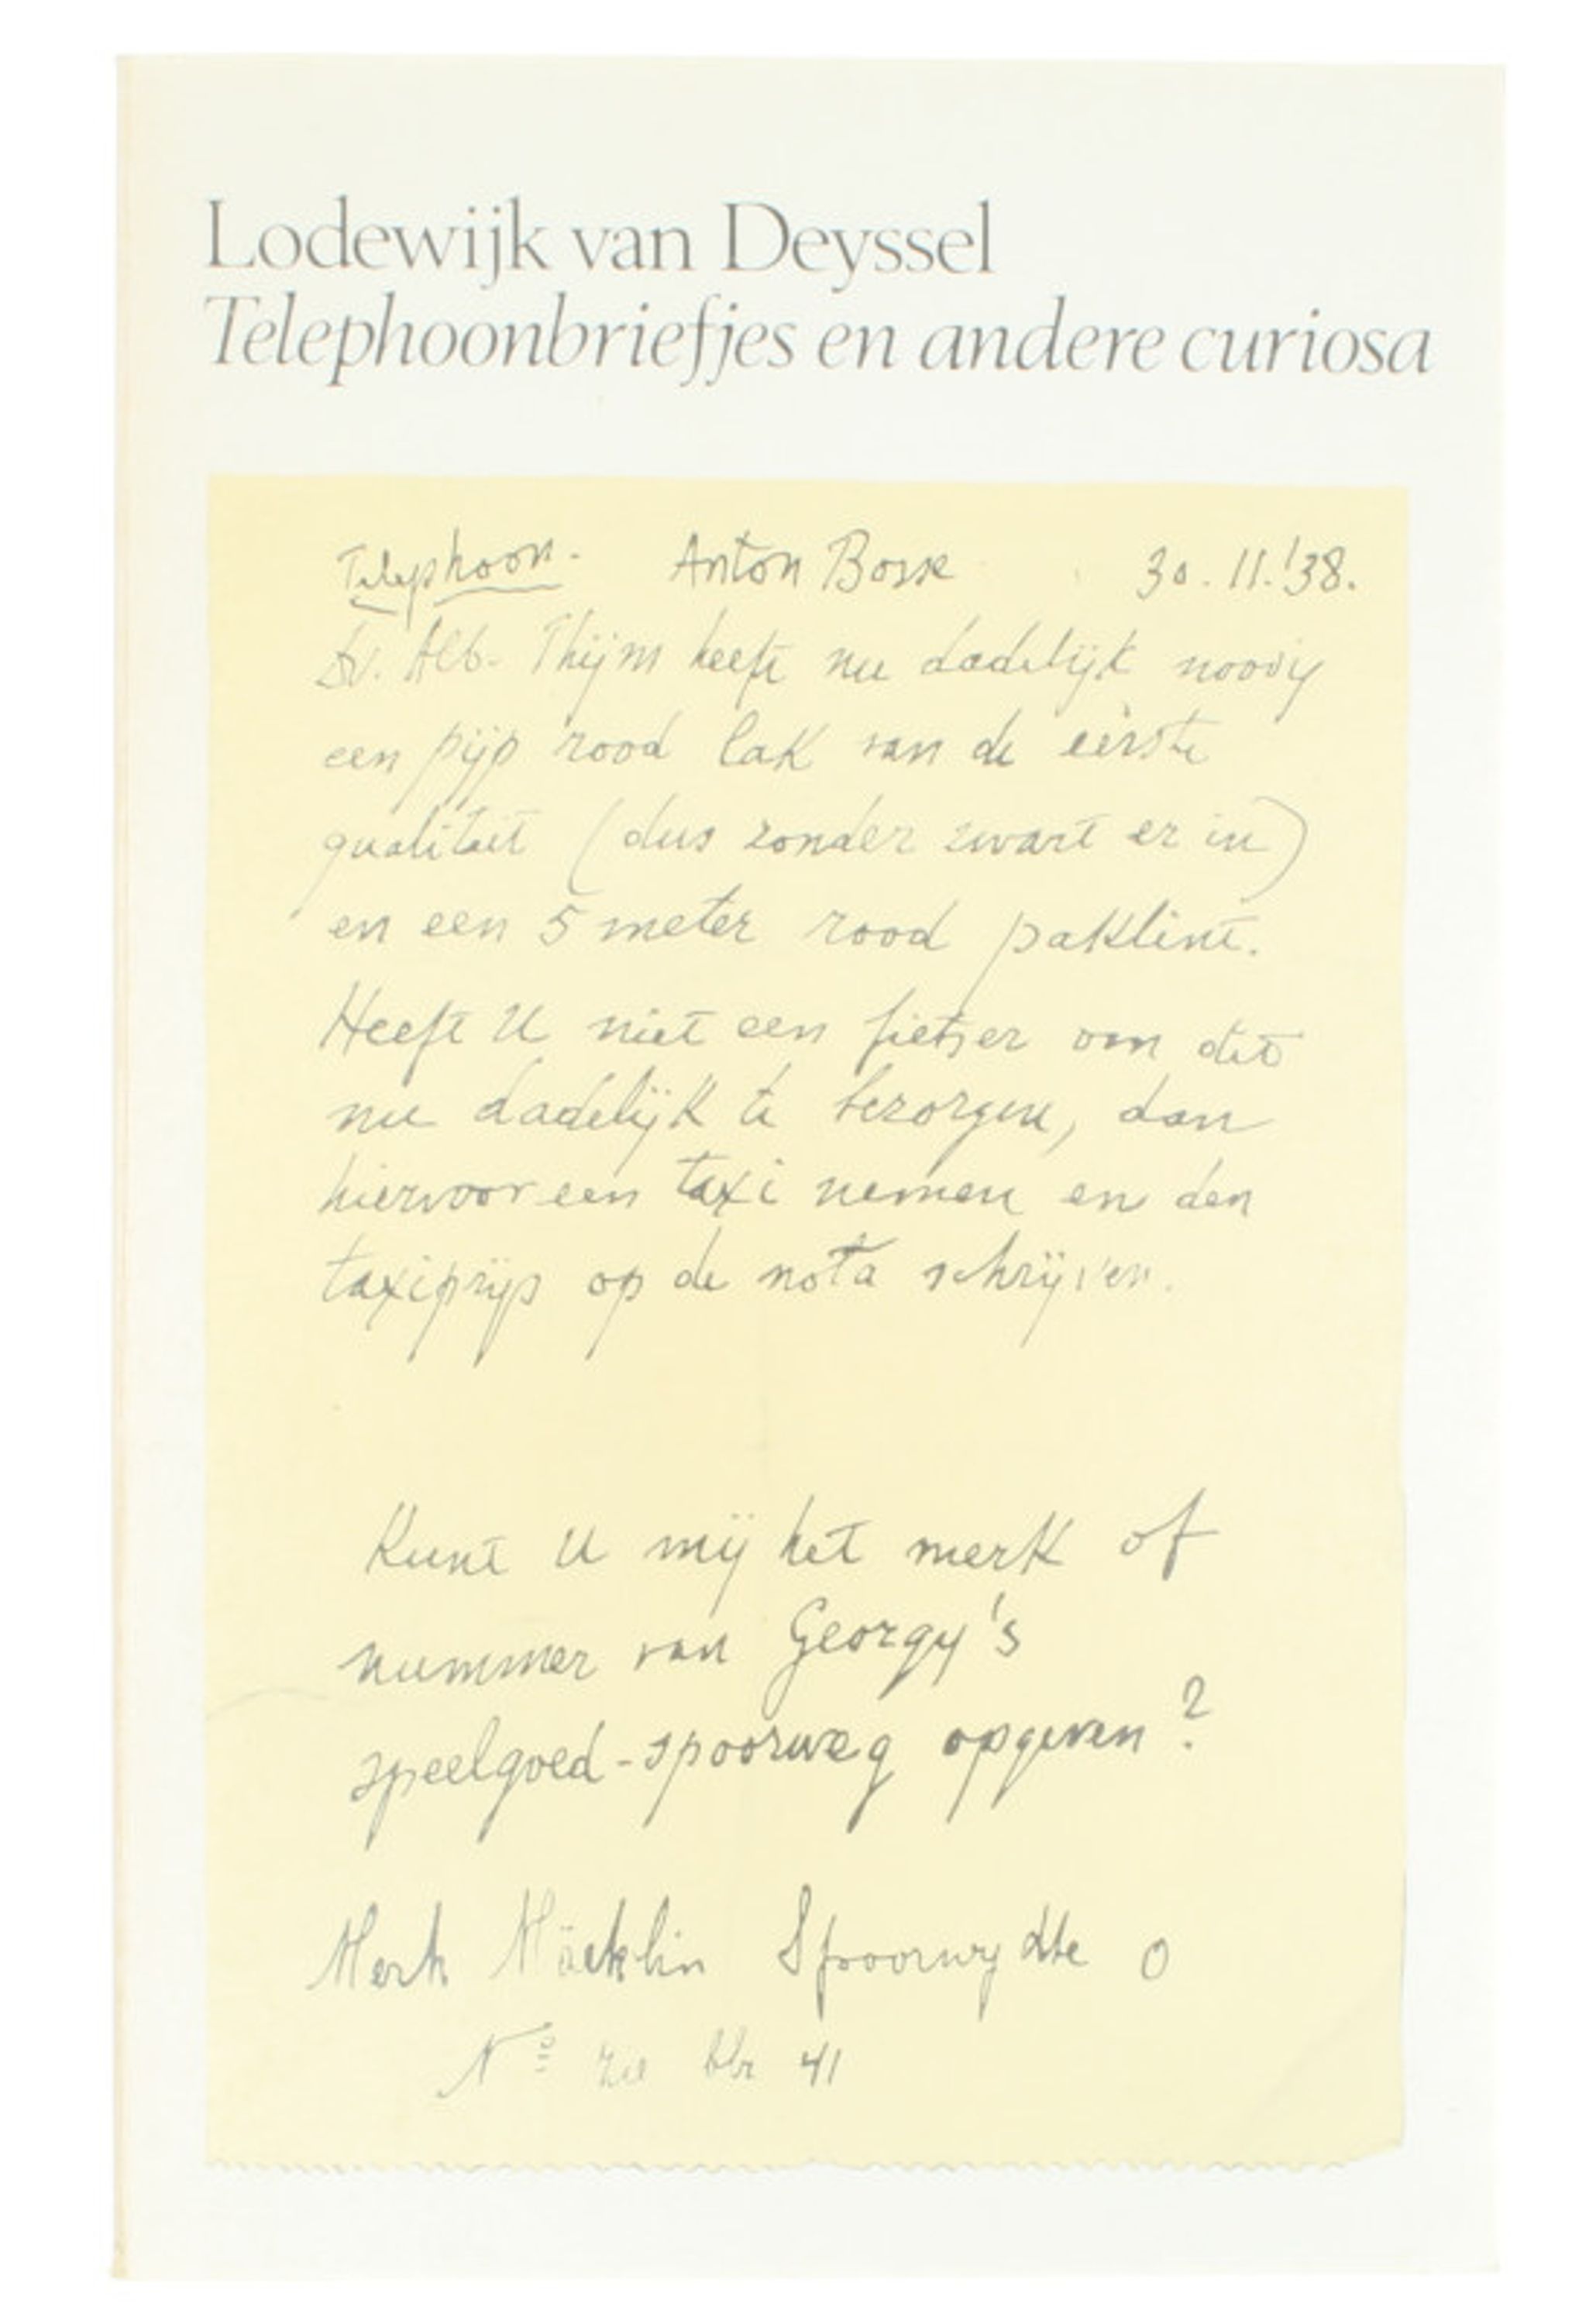 Lodewijk van Deyssel
Telephoonbriefjes en andere curiosa
Telephoon. Anton Bosse 30.11.'38.
Dr. Alb. Thijm heeft nu dadelijk noodig
een pijp rood lak van de eerste
qualiteit (dus zonder zwart er in)
en een 5 meter rood paklint.
Heeft U niet een fietser om dit
nu dadelijk te bezorgen, dan
hiervoor een taxi nemen en den
taxiprijs op de nota schrijven.
Kunt U mij het merk of
nummer van Georgy's
speelgoed-spoorweg opgeven?
Merk Märklin Spoorwydte 0
No zie blz 41